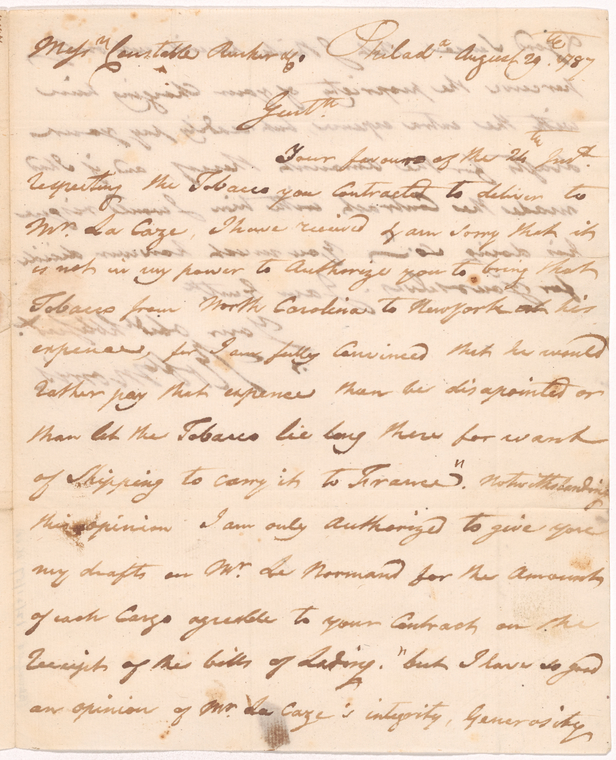 Mess.rs Constable Rucker & Co. Philad.a August 29.th 1787
Gent.n
Your favours of the 24th Inst.
respecting the Tobacco you Contracted to deliver to
Mr. La Caze, I have received & am sorry that it
is not in my power to Authorize you to bring that
Tobacco from North Carolina to New York at his
expence, for I am fully Convinced that he would
rather pay that expence than be disapointed or
than let the Tobacco lie long there for want
of Shipping to carry it to France". Notwithstanding
this opinion I am only Authorized to give you
my drafts on Mr. Le Normand for the Amounts
of each Cargo agreable to your Contract on the
Receipt of the bills of Lading. "but I have so good
an opinion of Mr. La Caze's integrity, Generosity